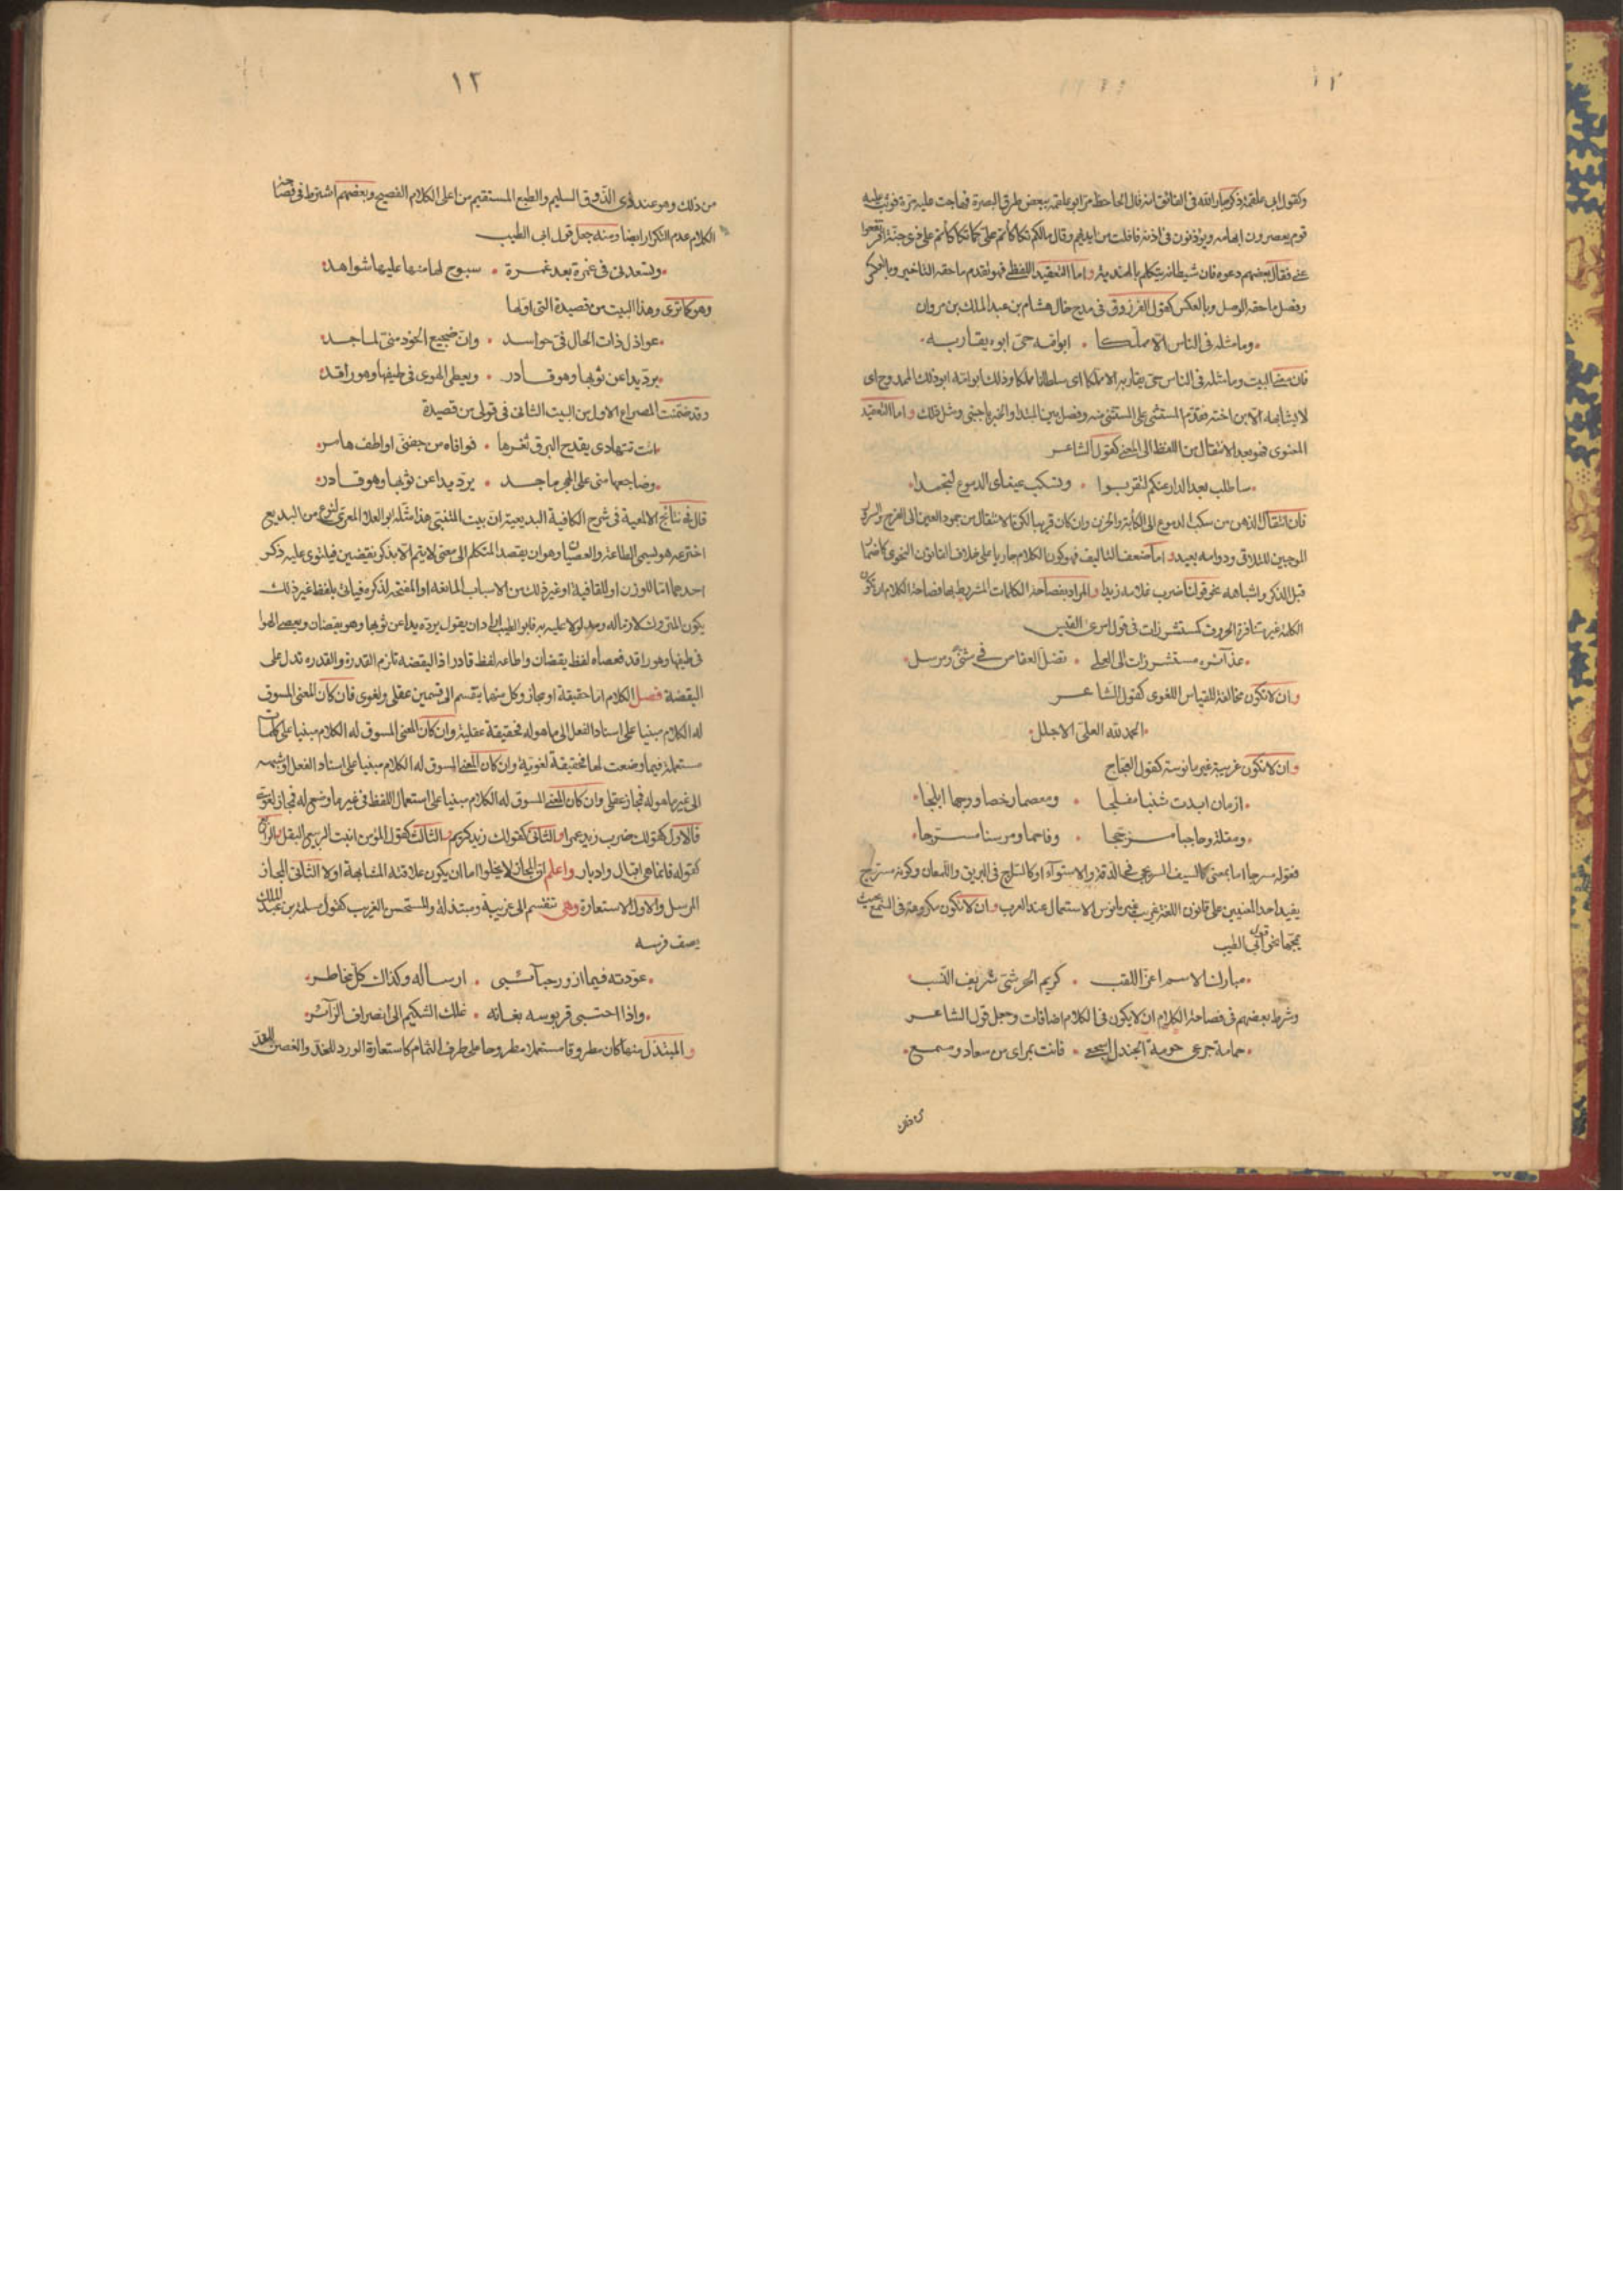 وكقول ابى علقمة ذكر جار الله فى الفائق انه قال الجاحظ مر ابو علقمة ببعض طرق البصرة فهاجت عليه مرة فوثب عليه
قوم يعصرون ابهامه ويؤذنون فى اذنه فافلت من ايديهم وقال مالكم تكاكاتم على كما تكاكاتم على ذى جنة افرنقعوا
عنى فقال بعضهم دعوه فان شيطانه يتكلم بالهندية واما التعقيد اللفظى فهو تقدم ما حقه التاخير وبالعكس
وفصل ما حقه الوصل وبالعكس كقول الفرزدق فى مدح خال هشام بن عبد الملك بن مروان
وما مثله فى الناس الا مملكا ابو امه حى ابوه يقاربه
فان معنى البيت وما مثله فى الناس حى يقاربه الا مملكا اى سلطانا مملكا وذلك ابو امه ابو ذلك الممدوح اى
لا يشابهه الا ابن اخته فقدم المستثنى على المستثنى منه وفصل بين المبتدا والخبر باجنبى ومثل ذلك واما التعقيد
المعنوى فهو بعد الانتقال من اللفظ الى المعنى كقول الشاعر
ساطلب بعد الدار عنكم لتقربوا وتسكب عيناى الدموع لتجمدا
فان انتقال الذهن من سكب الدموع الى الكأبة والحزن وان كان قريبا لكن الانتقال من جمود العين الى الفرح والسرور
الموجبين للتلاقى ودوامه بعيد واما ضعف التاليف فهو كون الكلام جاريا على خلاف القانون النحوى كاضمار
قبل الذكر واشباهه نحو قولنا ضرب غلامه زيدا والمراد بفصاحة الكلمات المشروط بها فصاحة الكلام ان تكون
الكلمة غير متنافرة الحروف كمستشزرات فى قول امرئ القيس
غدائره مستشزرات الى العلى تضل العقاص فى مثنى ومرسل
وان لا تكون مخالفة للقياس اللغوى كقول الشاعر
الحمد لله العلى الاجلل
وان لا تكون غريبة غير مانوسة كقول العجاج
ازمان ابدت شنبا مفلجا ومعصما رخصا ووجها ابلجا
ومقلة وحاجبا مزججا وفاحما ومرسنا مسرجا
فقوله مسرجا اما بمعنى كالسيف السريجى فى الدقة والاستواء او كالسراج فى البريق واللمعان وكونه مسرج
يفيد احد المعنيين على قانون اللغة غريب غير مانوس الاستعمال عند العرب وان لا تكون مكروهة فى السمع بحيث
يمجها نحو قول ابى الطيب
مبارك الاسم اغر اللقب كريم الجرشى شريف النسب
وشرط بعضهم فى فصاحة الكلام ان لا يكون فى الكلام اضافات وجعل قول الشاعر
حمامة جرعى حومة الجندل اسجعى فانت بمراى من سعاد ومسمع
١٢
من ذلك وهو عند ذوى الذوق السليم والطبع المستقيم من اعلى الكلام الفصيح وبعضهم اشترط فى فصاحة
الكلام عدم التكرار ايضا ومنه جعل قول ابى الطيب
وتسعدنى فى غمرة بعد غمرة سبوح لها منها عليها شواهد
وهو كما ترى وهذا البيت من قصيدة التى اولها
عواذل ذات الخال فى حواسد وان ضجيع الخود منى لماجد
يرد يدا عن ثوبها وهو قادر ويعطى الهوى فى طيفها وهو راقد
وقد ضمنت المصراع الاول من البيت الثانى فى قولى من قصيدة
اتت تتهادى يقدح البرق ثغرها فوافاه من جفنى او اطف هامر
وضاجعها منى على الهجر ماجد يرد يدا عن ثوبها وهو قادر
قال فى نتائج الالمعية فى شرح الكافية البديعية ان بيت المتنبى هذا مثله ابو العلا المعرى لنوع من البديع
اخترعه هو ليسمى الطاعة والعصيان وهو ان يقصد المتكلم الى معنى لا يتم الا بذكر نقيضين فيلتوى عليه ذكر
احدهما اما للوزن او للقافية او غير ذلك من الاسباب المانعة او المقتضية لذكره فياتى بلفظ غير ذلك
يكون فابو الطيب اراد ان يقول يرد يدا عن ثوبها وهو يقضان ويعصى الهوا
فى طيفها وهو راقد فعصاه لفظ يقضان واطاعه لفظ قادر اذ اليقضه تلزم القدرة والقدره تدل على
اليقضة فصل الكلام اما حقيقة او مجاز وكل منهما ينقسم الى قسمين عقلى ولغوى فان كان المعنى المسوق
له الكلام مبنيا على اسناد الفعل الى ما هو له فحقيقة عقلية وان كان المعنى المسوق له الكلام مبنيا على كلمات
مستعملة فيما وضعت لها فحقيقة لغوية وان كان المعنى المسوق له الكلام مبنيا على اسناد الفعل او شبهه
الى غير ما هو له فمجاز عقلى وان كان المعنى المسوق له الكلام مبنيا على استعمال اللفظ فى غير ما وضع له فمجاز لغوى
فالاول كقولك ضرب زيد عمرا والثانى كقولك زيد كريم والثالث كقول المؤمن انبت الربيع البقل والرابع
كقوله فانما هى اقبال وادبار واعلم ان المجاز لا يخلوا اما ان يكون علاقته المشابهة او لا الثانى المجاز
المرسل والاول الاستعارة وهى تنقسم الى غريبة ومبتذلة والمستحسن الغريب كقول مسلمة بن عبد الملك
يصف فرسه
عودته فيما ازور حبائبى ارساله وكذاك كل مخاطر
واذا احتبى قربوسه بعنانه علك الشكيم الى انصراف الزائر
والمبتذل منها كان مطروقا مستعملا مطروحا على طرف الثمام كاستعارة الورد للخد والغصن للقد